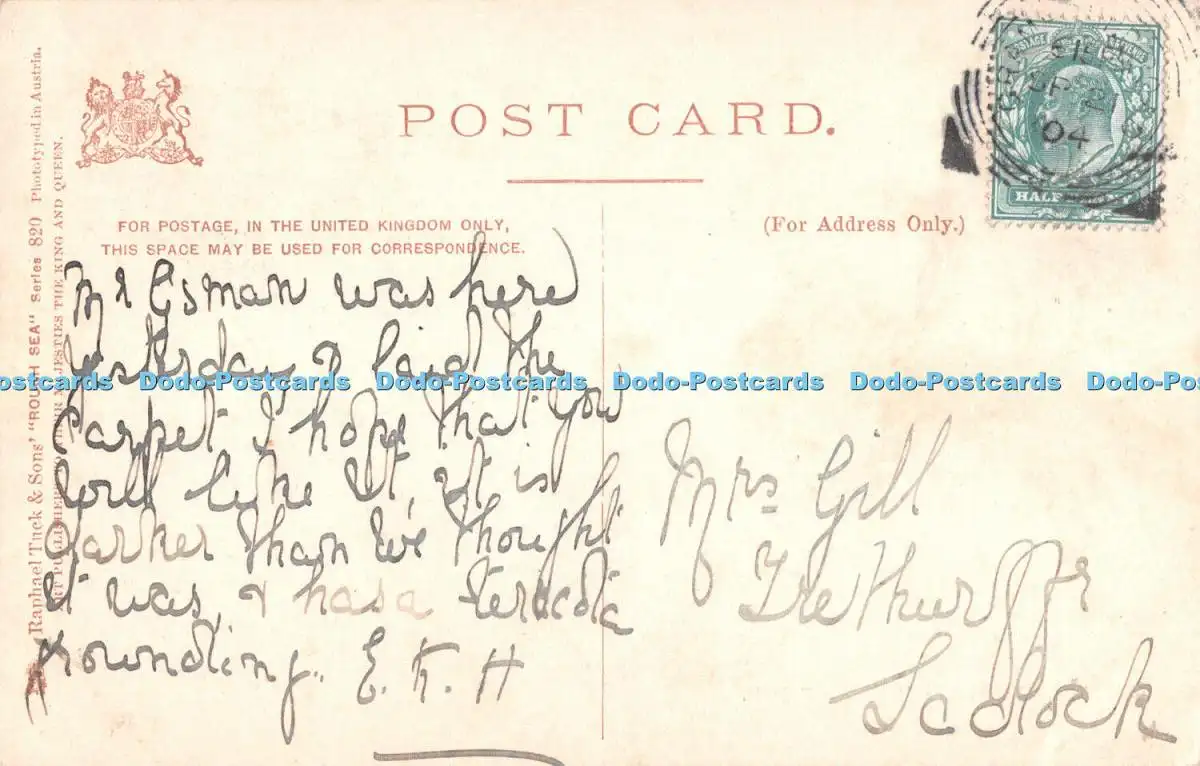 POST CARD.
FOR POSTAGE, IN THE UNITED KINGDOM ONLY,
THIS SPACE MAY BE USED FOR CORRESPONDENCE.
(For Address Only.)
Raphael Tuck & Sons' "ROUGH SEA" Series 820 Phototyped in Austria.
ART PUBLISHERS TO THEIR MAJESTIES THE KING AND QUEEN.
POSTAGE REVENUE
HALF
04
Mr Esman was here
yesterday & laid the
Carpet I hope that you
will like it, it is
darker than we thought
it was, & has a
E. K. H
Mrs Gill
Trethurffe
Ladock
Dodo-Postcards Dodo-Postcards Dodo-Postcards Dodo-Postcards Dodo-Postcards Dodo-Po